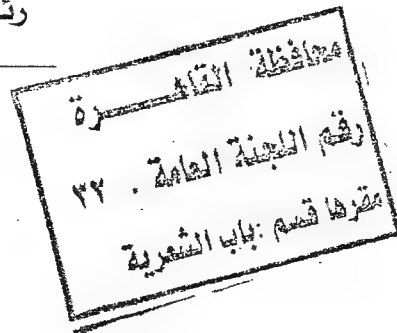 محافظة القاهـــــرة
رقم اللجنة العامة . ٣٢
مقرها قسم :باب الشعرية